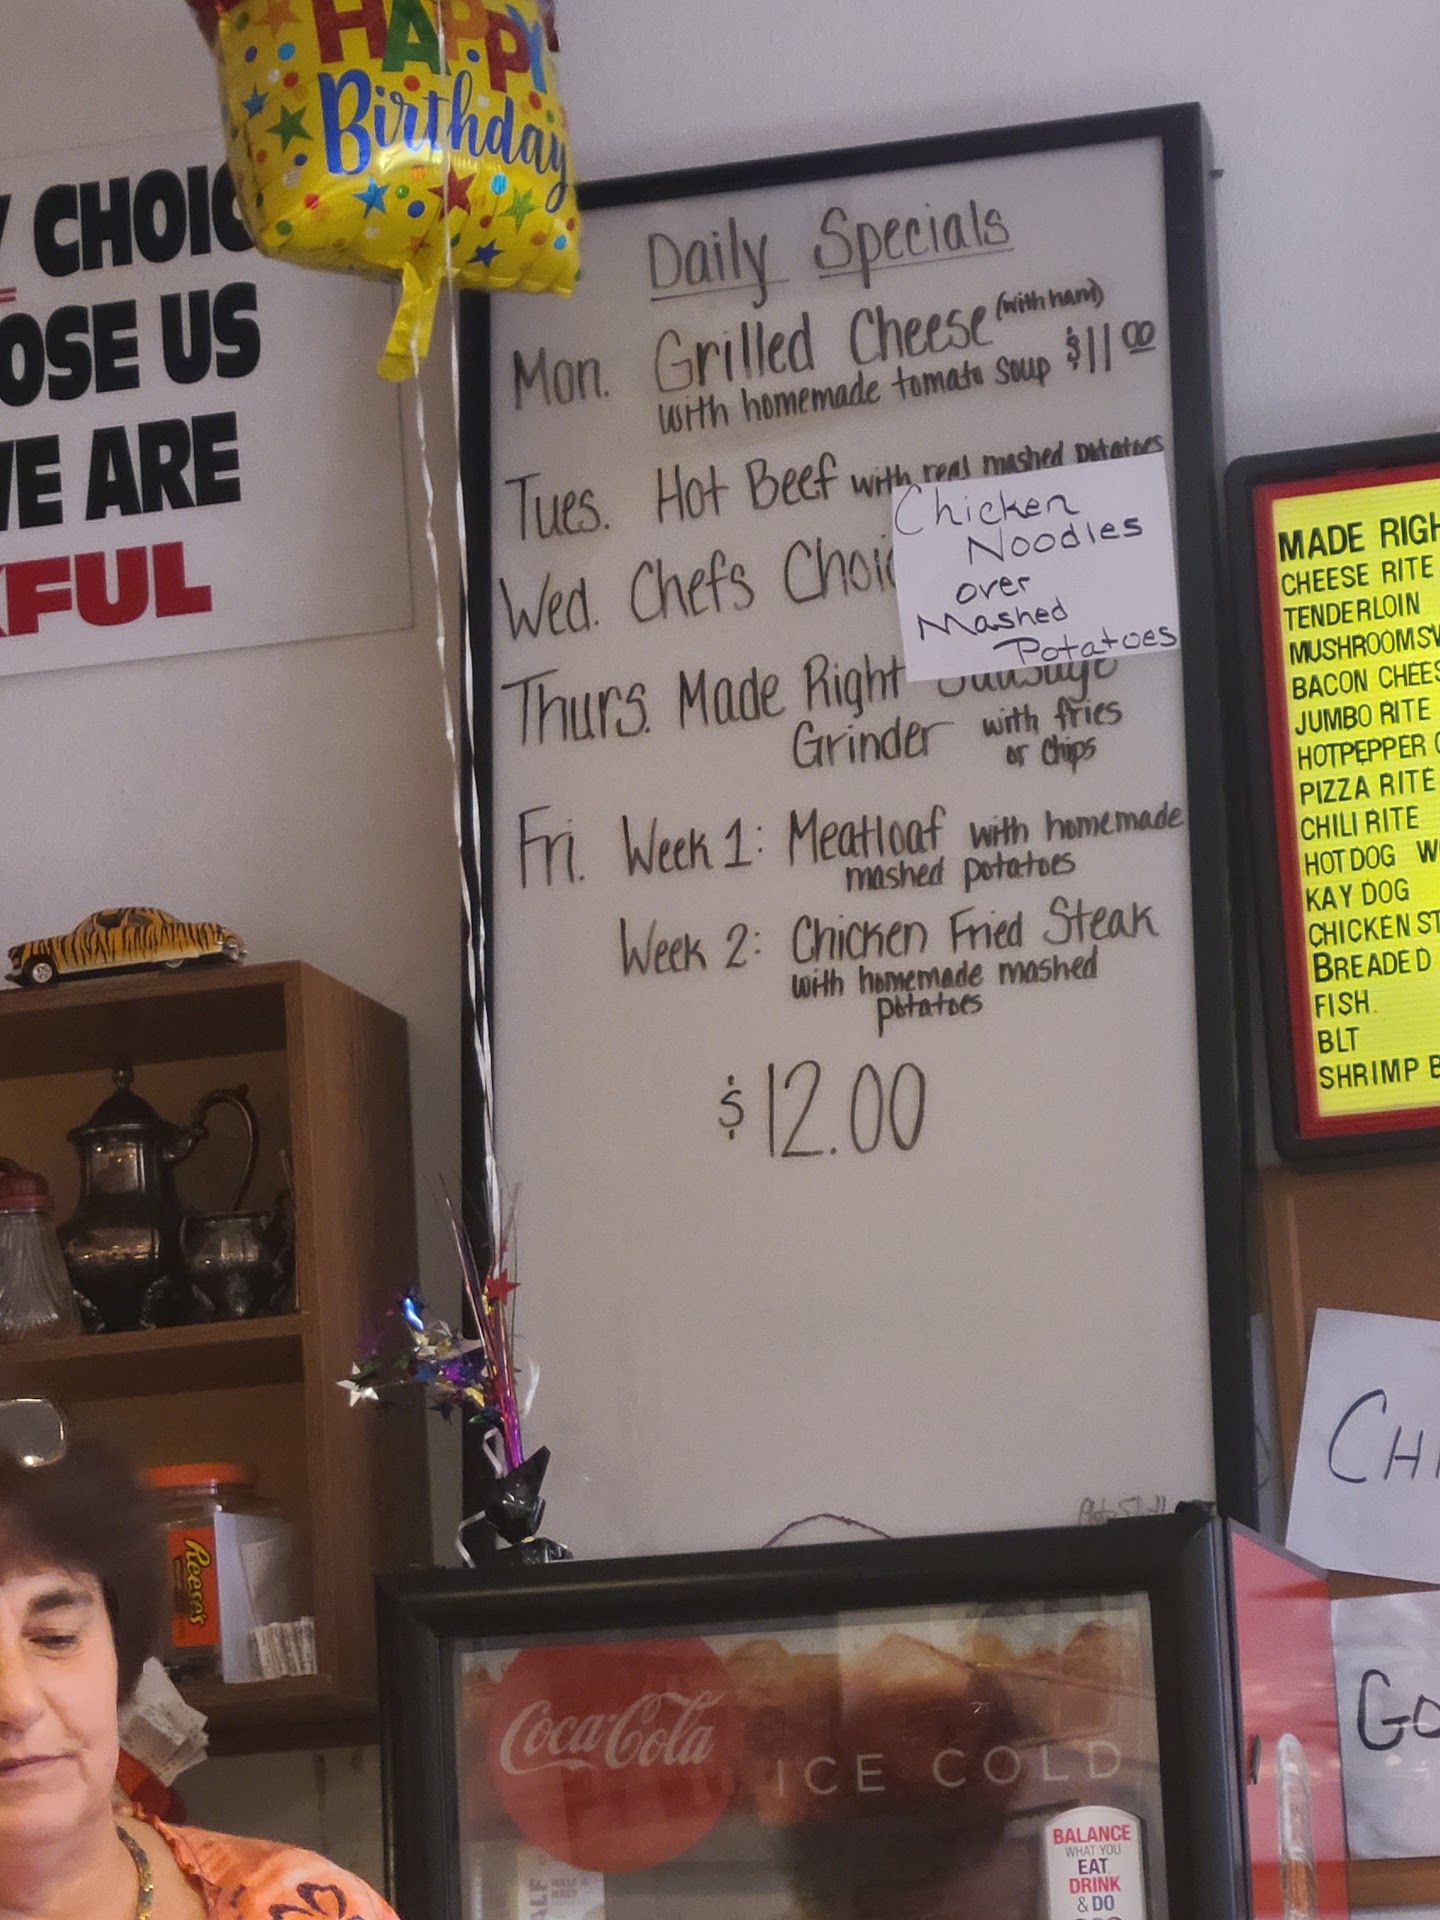 HAPPY
Birthday
CHOIC
OSE US
ARE
FUL
Daily Specials
Mon. Grilled Cheese (with ham)
with homemade tomato soup $11 00
Tues. Hot Beef with real mashed potatoes
Wed. Chefs Choic
Chicken
Noodles
over
Mashed
Potatoes
Thurs. Made Right Sausage
Grinder with fries
or chips
Fri. Week 1: Meatloaf with homemade
mashed potatoes
Week 2: Chicken Fried Steak
with homemade mashed
potatoes
$12.00
MADE RIGH
CHEESE RITE
TENDERLOIN
MUSHROOMSW
BACON CHEES
JUMBO RITE
HOTPEPPER C
PIZZA RITE
CHILI RITE
HOT DOG W
KAY DOG
CHICKEN ST
BREADED
FISH
BLT
SHRIMP B
CHI
GO
Reese's
Coca-Cola
ICE COLD
BALANCE
WHAT YOU
EAT
DRINK
& DO